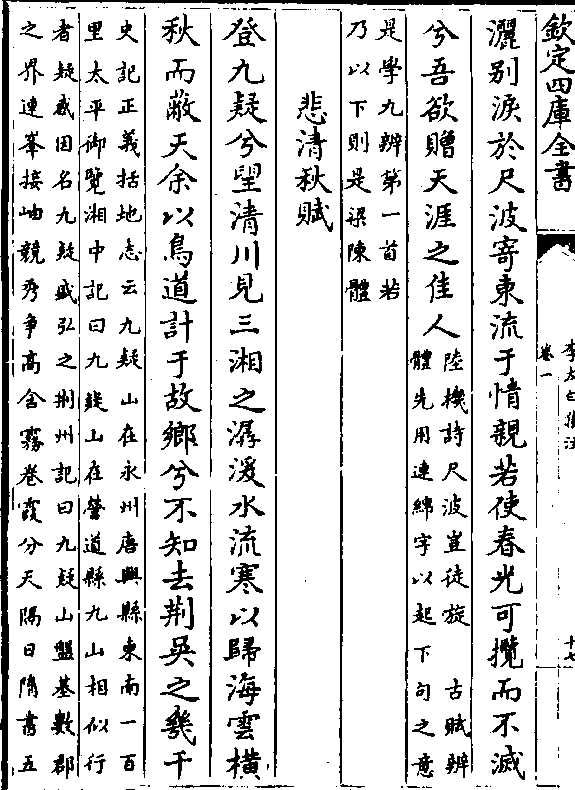 欽定四庫全書
李太白集注
卷一
十七
灑别淚於尺波寄東流于情親若使春光可攬而不滅
兮吾欲贈天涯之佳人陸機詩尺波豈徒旋 古賦辨
體先用連綿字以起下句之意
是學九辨第一首若
乃以下則是梁陳體
悲清秋賦
登九疑兮望清川見三湘之潺湲水流寒以歸海雲横
秋而蔽天余以鳥道計于故鄉兮不知去荆吳之幾千
史記正義括地志云九疑山在永州唐興縣東南一百
里太平御覽湘中記曰九疑山在營道縣九山相似行
者疑惑因名九疑盛弘之荆州記曰九疑山盤基數郡
之界連峯接岫競秀争高含霧卷霞分天隔日隋書五